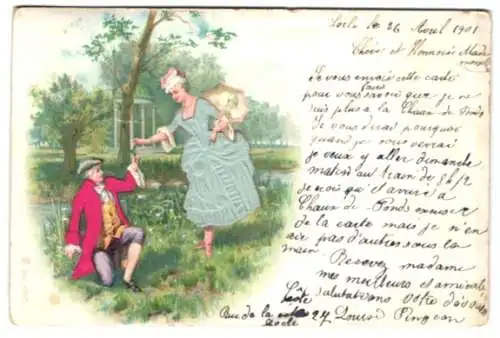 Locle le 26 Avril 1901
Chère et Honnorée Mada
Je vous envois cette carte
pour vous faire savoir que je ne
suis plus a la Chaux de Fonds
Je vous dirai pourquoi
quand je vous verrai
je veux y aller dimanche
matin au train de 8 h 1/2
je crois qu'il arrive a
Chaux de Fonds excuser
de la carte mais je n'en
ai pas d'autres sous la
main. Recevez madame
mes meilleurs et
salutations votre
Louise Pingeon
Rue de la
Locle 27